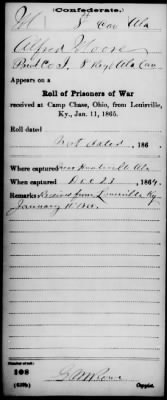 (Confederate.)
M 8 Cav Ala
Alfred Moose
Pvt Co. I, 8 Reg't Ala Cav
Appears on a
Roll of Prisoners of War
received at Camp Chase, Ohio, from Louisville,
Ky., Jan. 11, 1865.
Roll dated
Not dated, 186
Where captured Near Huntsville Ala
When captured Dec 23, 1864.
Remarks: Received from Louisville Ky
January 11 1865.
Number of roll:
108
(639b) Copyist.